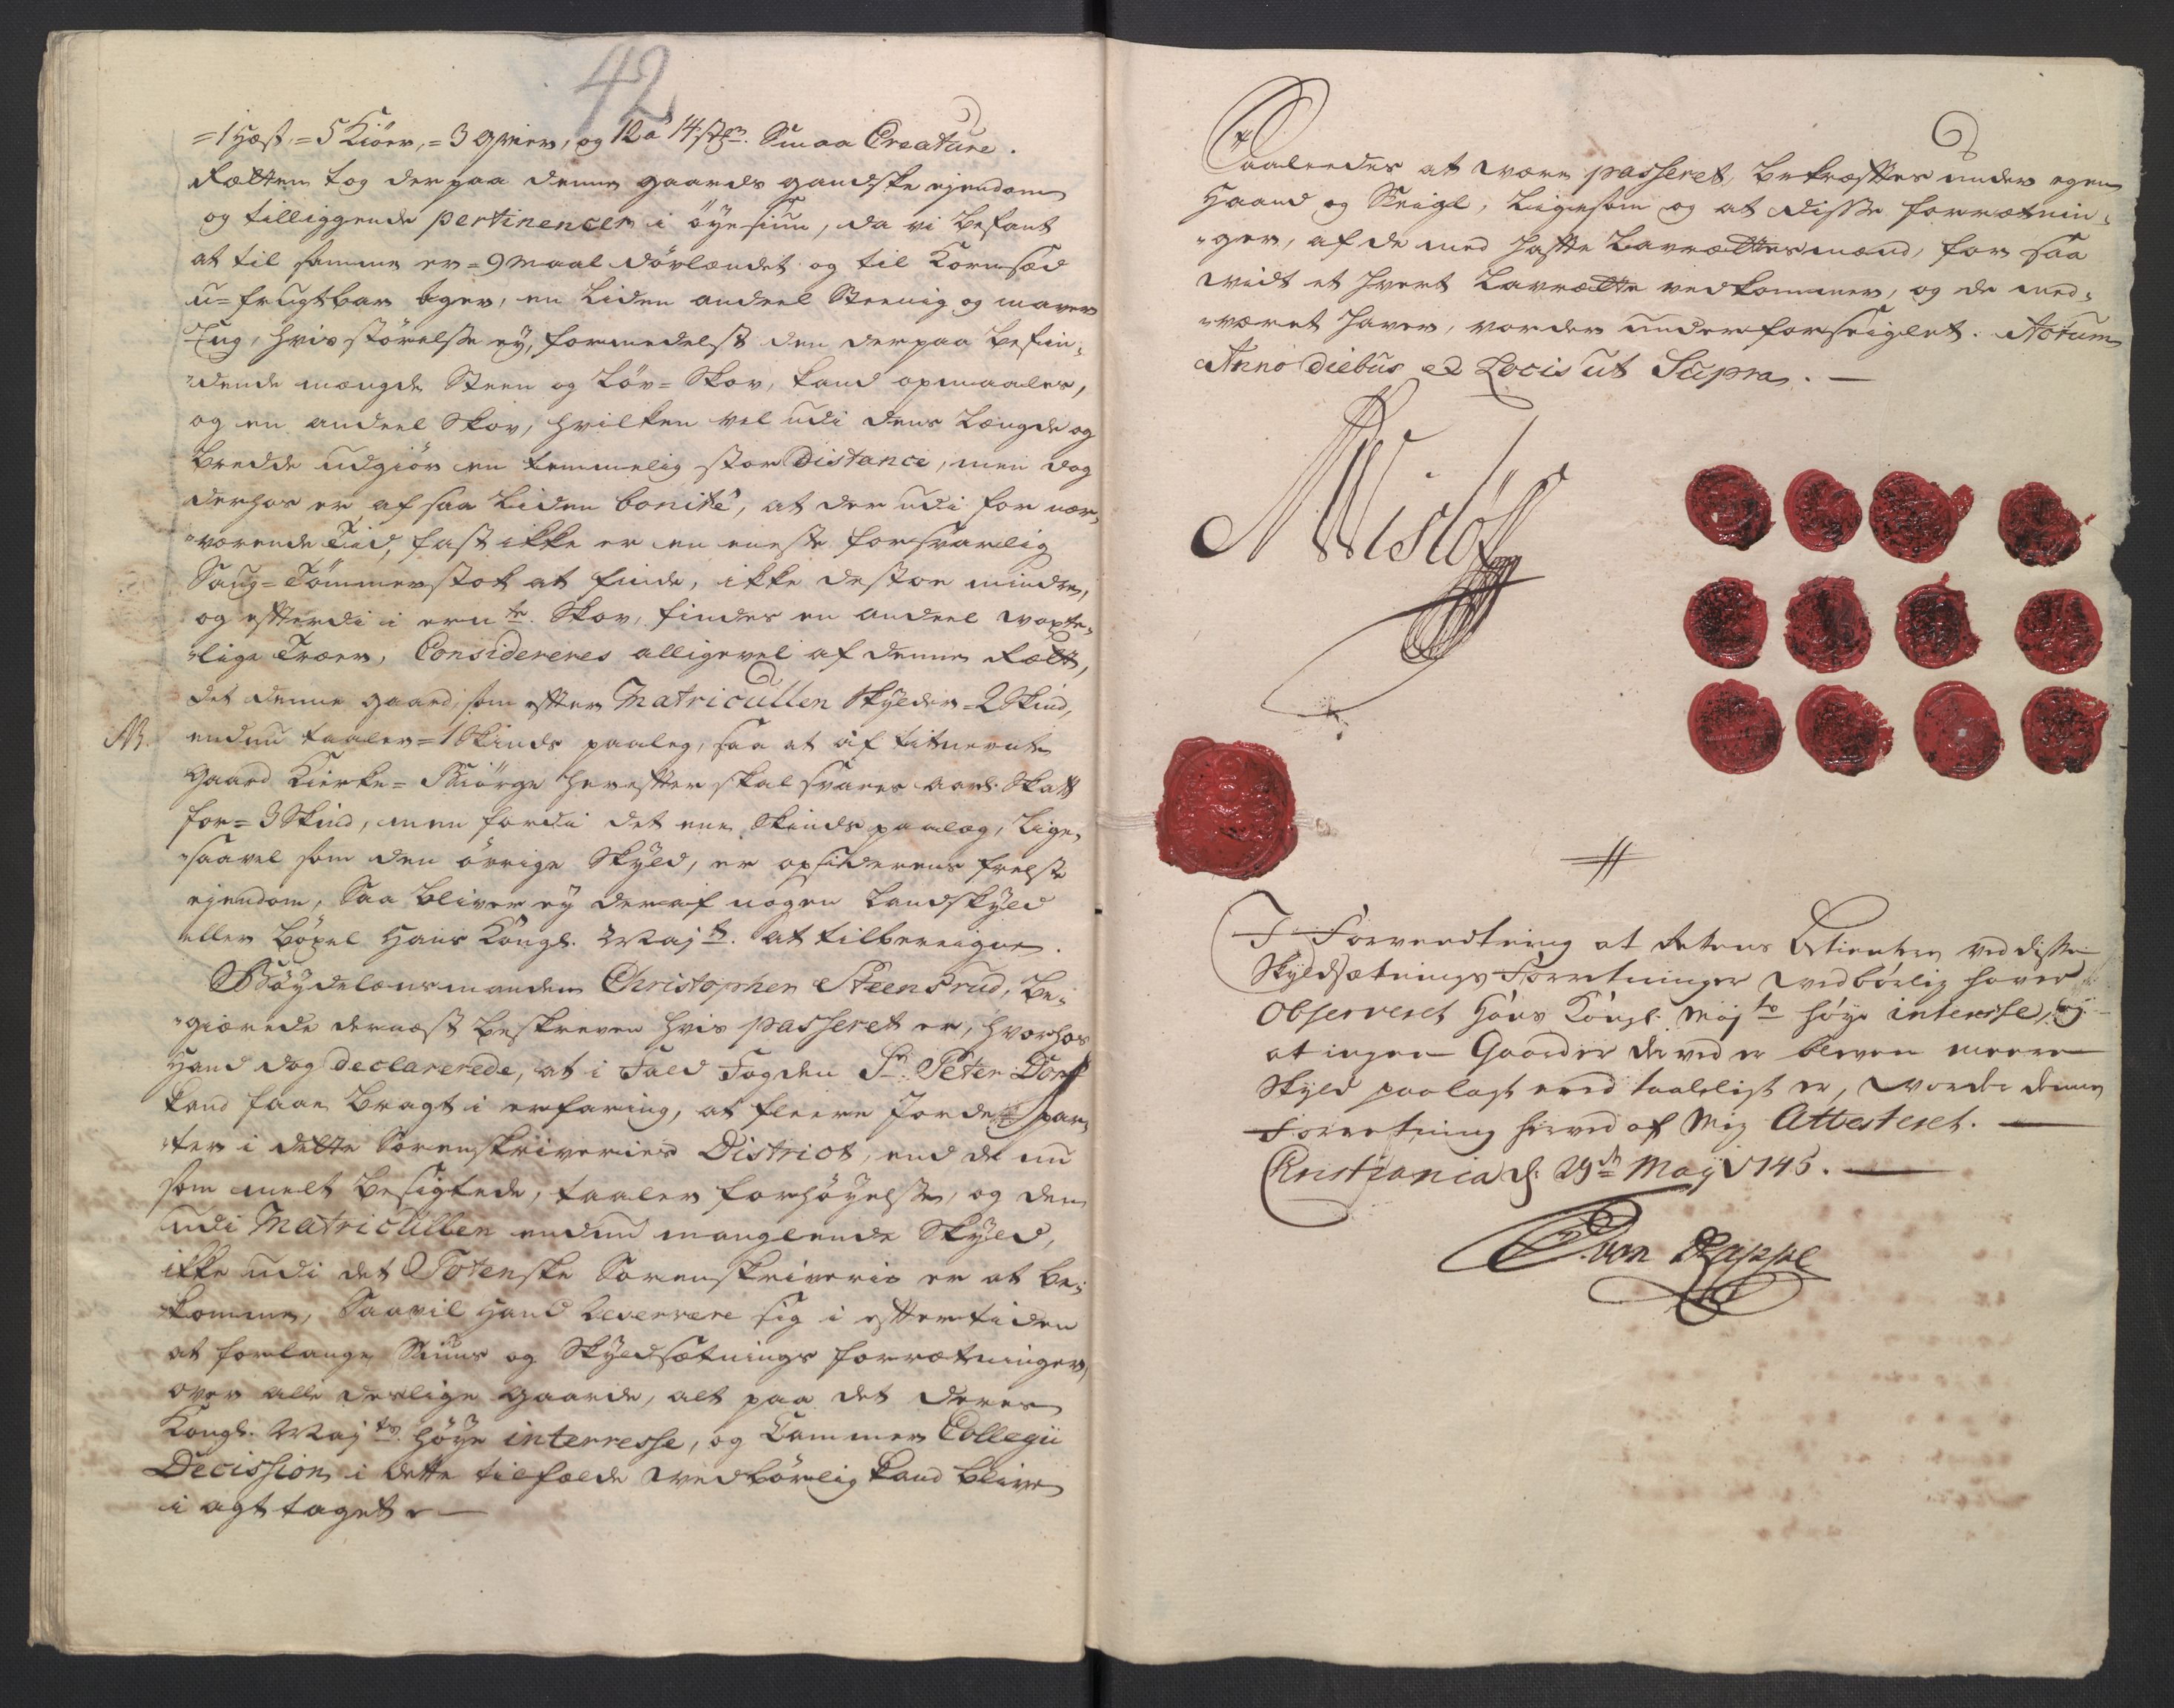 42
=1 Hæst, =5 Kiøer, =3 Qvier, og 12 á 14 st. Smaa Creature.
Rætten tog derpaa denne gaards gandske ejendom
og tilliggende pertinencer i öyesiun, da vi befant
at til samme er =9 Maal dörlændet og til Kornsæd
u=frugtbar Ager, en Liden andeel Steenig og mager
Eng, hvis störelse ey, formedelst den derpaa befin¸
"dende mængde Steen og Löv=Skov, kand opmaales,
og en andeel Skov, hvilken vel udi dens Længde og
bredde udgiör en temmelig stor Distance, men dog
derhos er af saa Liden bonité, at der udi for nær¸
"værende Tid, fast ikke er en eneste forsvarlig
Saug=Tömmerstok at finde, ikke desto mindre,
og efterdi i ern.te Skov, findes en andeel voxte¸
"lige Træer, Considereres alligevel af denne Rætt,
det denne gaard, som efter Matricullen Skylder =2 Skind,
NB. endnu taaler =1 Skinds paaleg, saa at af titnernte
Gaard Kierke=Skiörge herefter skal svares aarl. Skatt
for =3 Skind, men fordi det ene Skinds paalæg, lige¸
"saavel som den övrige Skyld, er opsidderens frelse
ejendom, Saa bliver ey deraf nogen Landskyld
eller böxel Hans Kongl. Mayt. at tilbereigne.
Böydelænsmanden Christopher Steensrud, be¸
"giærede dernæst beskreven hvis passeret er, hvorhos
Hand dog declarerede, at i Fald Fogden Sr. Peter Dorf
kand faae bragt i erfaring, at fleere Jorde par¸
"ter i dette Sorenskriveries District, end de nu
som melt besigtede, taaler forhöyelse, og den
udi Matricullen endnu manglende Skyld,
ikke udi det Totenske Sorenskriverie er at be¸
komme, Saa vil Hand reservere sig i eftertiden
at forlange Siuns og Skyldsætnings forrætninger
over alle deslige gaarde, alt paa det deres
Kongl. Mayts. höye interresse, og Cammer Collegii
Decission i dette tilfælde vedbörlig kand blive
i agt taget. —
Saaleedes at være passeret, bekræftes under egen
Haand og Seigl, Ligesom og at disse forrætnin¸
"ger, af de med hafte Lavrættesmænd, for saa
vidt et hvert Lavrætte vedkommer, og de med¸
"været haver, vorder underforseiglet. Actum
Anno diebus et Locis ut Supra. —
NWislöf
I Forventning at Retens Betienter ved disse
Skyldsætnings Forretninger vedbörlig haver
Observeret Hans Kongl. Mayts höye interesse, og
at ingen Gaarder derved er bleven meere
Skyld paalagt end taaleligt er, vorder denne
Forretning herved af Mig Attesteret. —
Christiania d. 29de Maij 1745. —
P. von Cappel